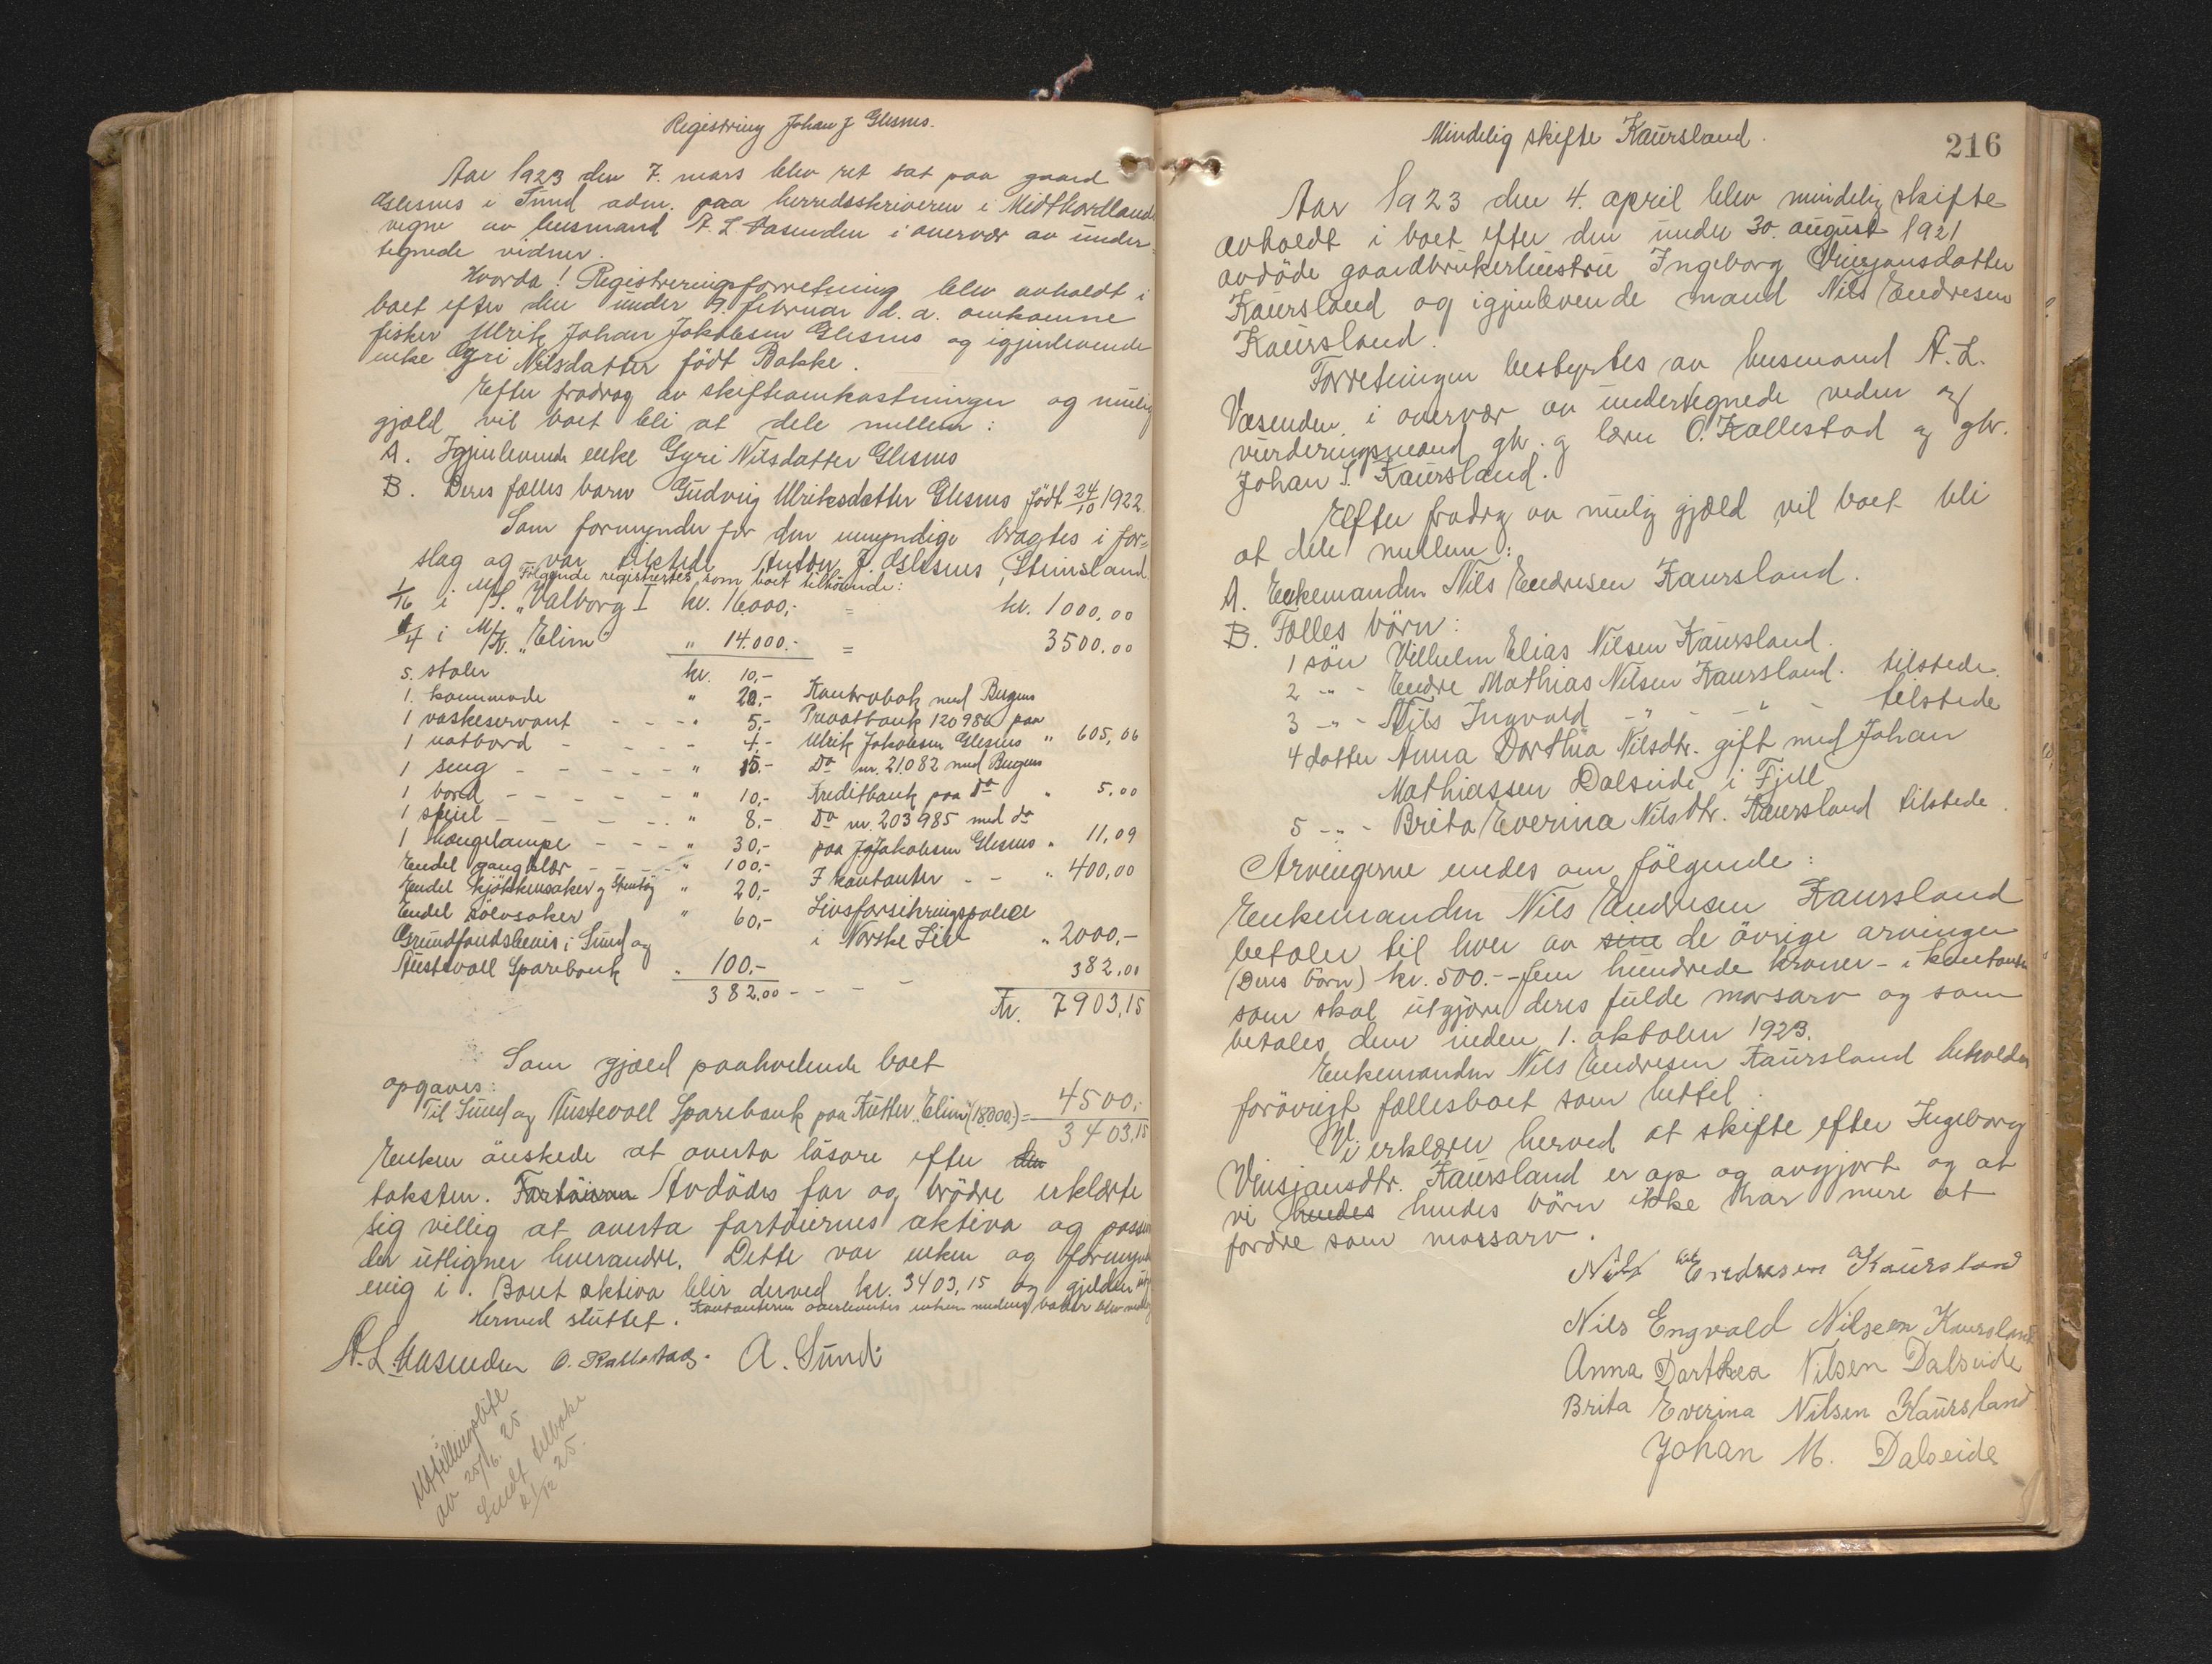 Registrering Johan J Glesnes.
Aar 1923 den 7. mars blev ret sat paa gaard
Glesnes i Sund adm. paa herredsskriveren i Midthordlands
vegne av lensmand A. L Vasenden i overvær av under-
tegnede vidner.
Hvorda! Registreringsforretning blev avholdt i
boet efter den under 9. februar d. a. omkomne
fisker Ulrik Johan Jakobsen Glesnes og igjenlevende
enke Gyri Nilsdatter født Bakke.
Efter fradrag av skifteomkostninger og mulig
gjæld vil boet bli at dele mellem:
A. Igjenlevende enke Gyri Nilsdatter Glesnes
B. Deres fælles barn Gudveig Ulriksdatter Glesnes født 24/10 1922.
Som formynder for den umyndige bragtes i for-
slag og var tilstede Anton J. Glesnes, Steinsland.
Følgende registrertes som boet tilhørende:
1/16 i M/S. "Valborg I" kr. 16000,- = kr. 1000,00
1/4 i M/K. "Elim" " 14.000.- = 3500,00
5. stoler kr. 10,-
1. kommode " 20,- Kontrabok med Bergens
1 vaskeservant - - - " 5,- Privatbank 120986 paa
1 natbord - - - - 4,- Ulrik Jakobsen Glesnes " 605,06
1 seng - - - - - " 15.- Do nr. 21082 med Bergens
1 bord - - - - - " 10,- Kreditbank paa do " 5.00
1 speil - - - - - " 8,- Do nr. 203985 med do
1 hængelampe - - - " 30,- paa J Jakobsen Glesnes " 11,09
Endel gangklær - - - " 100,- I kontanter - - " 400,00
Endel kjøkkensaker og Stentøj " 20,- Livsforsikringspolice
Endel sølvsaker " 60,- i Norske Liv " 2000,-
Grundfondsbevis i Sund og
Austevoll Sparebank " 100,- 382,00
382.00 - - - - Kr. 7903,15
Som gjæld paahvilende boet
opgaves:
Til Sund og Austevoll Sparebank paa Kutter "Elim" (18.000) = 4500,-
3403,15
Enken ønskede at overta løsøre efter den
taksten. Fartøieren Avdødes far og brødre erklærte
sig villig at overta fartøiernes aktiva og passiva
der utligner hverandre. Dette var enken og formynder
enig i. Boets aktiva blir derved kr. 3403,15 og gjelden
Hermed sluttet. Kontanterne overleveres enken
A. L Vasenden O. Kallestad. A. Sund.
Utfillingsliste
av 25/6. 25
Sendt tilbake
2/12 25.
216
Mindelig skifte Kaursland.
Aar 1923 den 4. april blev mindelig skifte
avholdt i boet efter den under 30. august 1921
avdøde gaardbrukerhustru Ingeborg Vinsjansdatter
Kaursland og igjenlevende mand Nils Endresen
Kaursland.
Forretningen bestyrtes av lensmand A. L.
Vasenden i overvær av undertegnede vidner og
vurderingsmænd gbr. og lærer O. Kallestad og gbr.
Johan S. Kaursland.
Efter fradrag av mulig gjæld vil boet bli
at dele mellem:
A. Enkemanden Nils Endresen Kaursland.
B. Fælles børn:
1 søn Vilhelm Elias Nilsen Kaursland.
2 -"- Endre Mathias Nilsen Kaursland. tilstede.
3 -"- Nils Ingvald -"- -"- tilstede
4 datter Anna Dorthia Nilsdtr. gift med Johan
Mathiassen Dalseide i Fjell
5 -"- Brita Everina Nilsdtr. Kaursland tilstede.
Arvingerne enedes om følgende:
Enkemanden Nils Endresen Kaursland
betaler til hver av sine de øvrige arvinger
(Deres børn) kr. 500.- -fem hundrede kroner- i kontanter
som skal utgjøre deres fulde morsarv og som
betales dem inden 1. oktober 1923.
Enkemanden Nils Endresen Kaursland beholder
forøvrigt fællesboet som hettil.
Vi erklærer herved at skifte efter Ingeborg
Vinsjansdtr. Kaursland er op og avgjort og at
vi hendes hendes børn ikke har mere at
fordre som morsarv.
Nils Endresen Kaursland
Nils Engvald Nilsen Kaursland
Anna Darthea Nilsen Dalseide
Brita Everina Nilsen Kaursland
Johan M. Dalseide